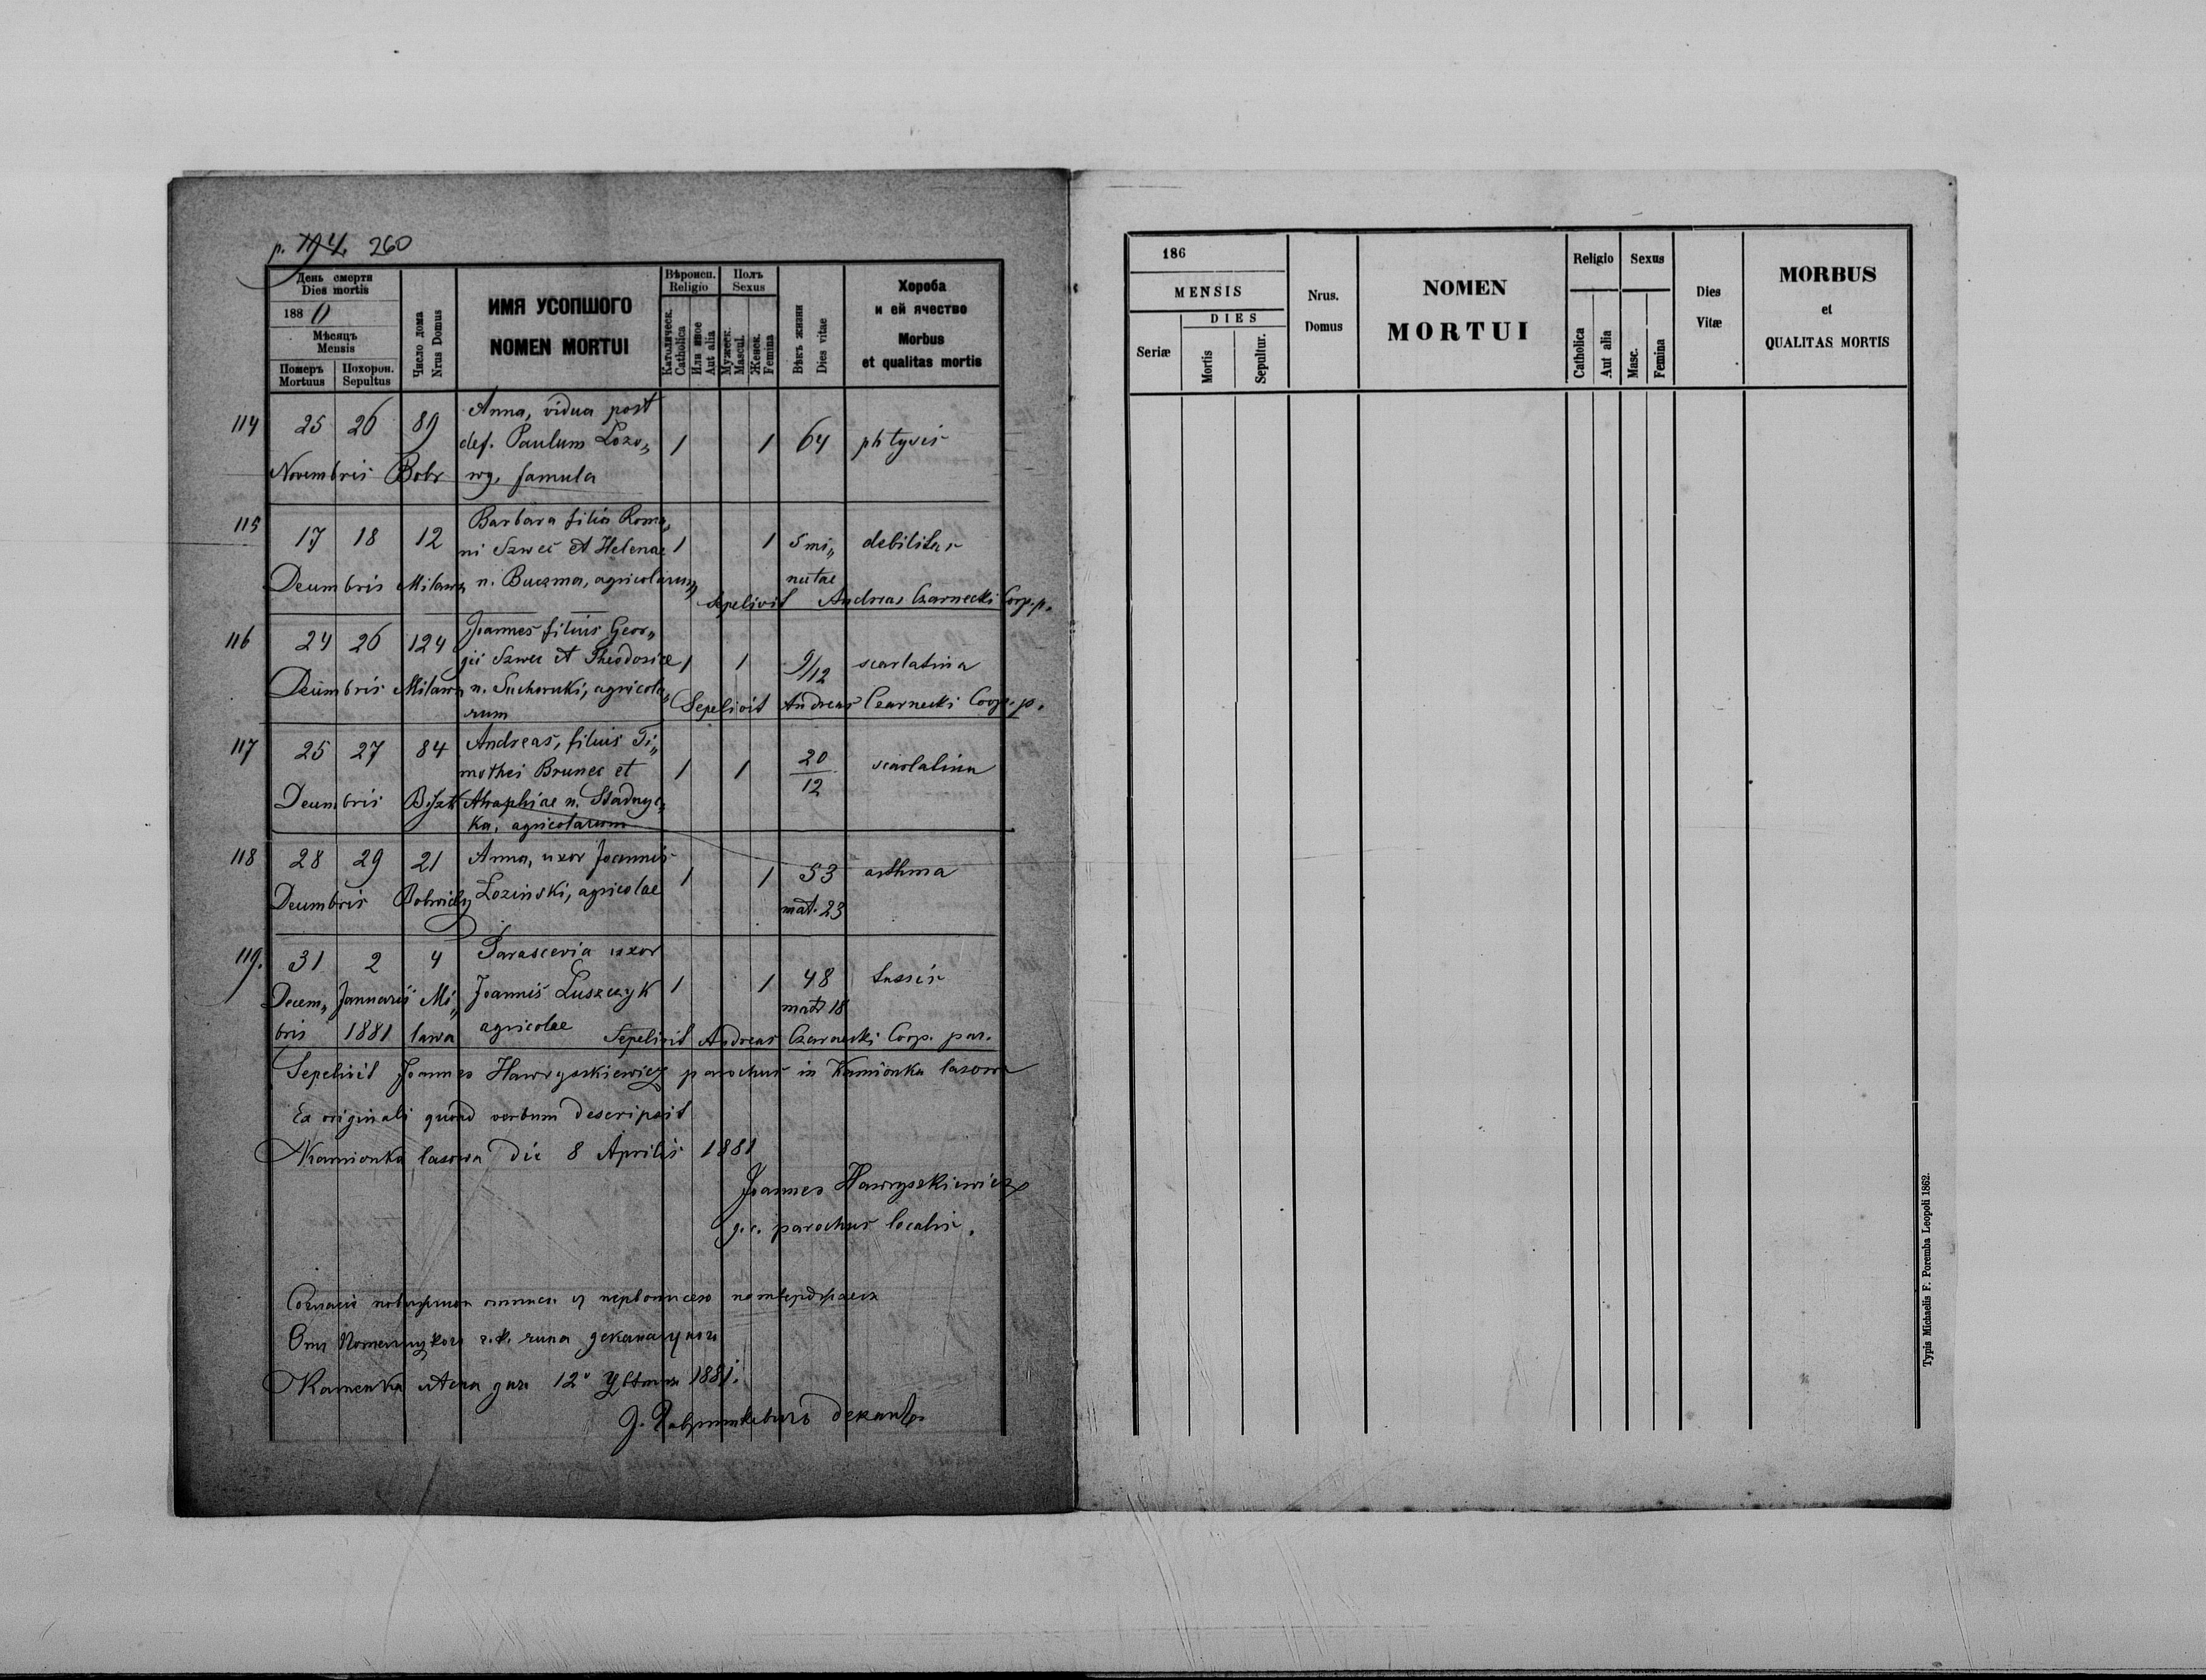 p. 194. 260
День смерти
Dies mortis
1880
Мѣсяцъ
Mensis
Померъ
Mortuus
Похорон.
Sepultus
Число дома
Nrus Domus
ИМЯ УСОПШОГО
NOMEN MORTUI
Вѣроисп.
Religio
Католическ.
Catholica
Или иное
Aut alia
Полъ
Sexus
Мужеск.
Mascul.
Женск.
Femina
Вѣкъ жизни
Dies vitae
Хороба
и ей ячество
Morbus
et qualitas mortis
114 25 26 89 Anna, vidua post
def. Paulum Lozo„ 1 1 64 phtysis
Novembris Bobr wy, famula
115 17 18 12 Barbara filia Roma„
ni Szwec et Helenae 1 1 5 mi„ debilitas
Decembris Milawa n. Buczma, agricolarum nutae
Sepelivit Andreas Czarnecki Coop. p.
116 24 26 124 Joannes filius Geor„
gii Szwec et Theodosiae 1 1 9/12 scarlatina
Decembris Milawa n. Suchorski, agricola„
rum Sepelivit Andreas Czarnecki Coop. p.
117 25 27 84 Andreas, filius Ti„
mothei Brunec et 1 1 20/12 scarlatina
Decembris Ahaphiae n. Stadnyc„
ka, agricolarum
118 28 29 21 Anna, uxor Joannis
Lozinski, agricolae 1 1 53 asthma
Decembris mat. 23
119. 31 2 4 Parascevia uxor
Decem„ Januarii Mi„ Joannis Luszczyk 1 1 48 tussis
mat 18
bris 1881 lawa agricolae Sepelivit Andreas Czarnecki Coop. par.
Sepelivit Joannes Hawryszkiewicz parochus in Kamionka lasowa
Ex originali quoad verbum descripsit
Kamionka lasowa die 8 Aprilis 1881
Joannes Hawryszkiewicz
g. c. parochus localis.
Каменка 12 1881.
деканъ
186
MENSIS
DIES
Seriæ
Mortis
Sepultur.
Nrus.
Domus
NOMEN
MORTUI
Religio
Catholica
Aut alia
Sexus
Masc.
Femina
Dies
Vitæ
MORBUS
et
QUALITAS MORTIS
Typis Michaelis F. Poremba Leopoli 1862.